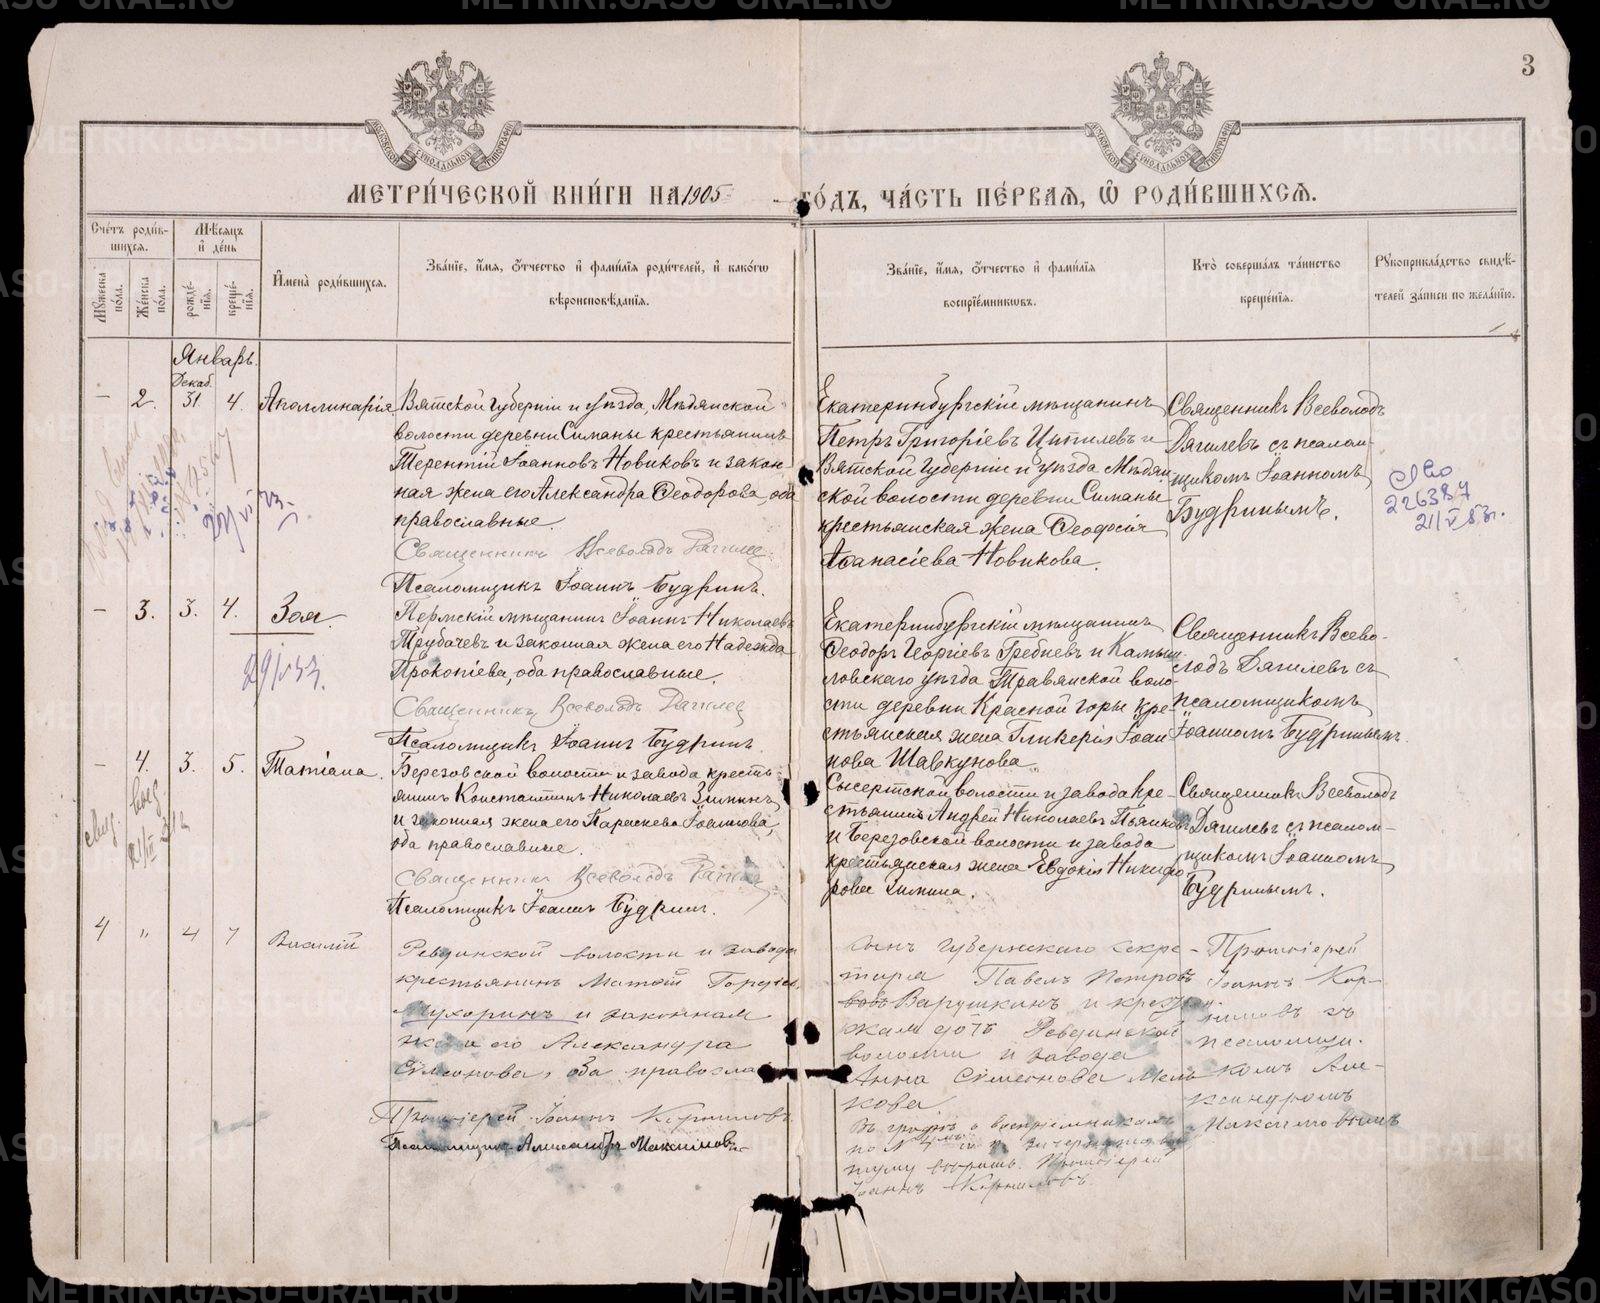 3
МЕТРИ́ЧЕСКОЙ КНИ́ГИ НА 1905 ГО́ДЪ, ЧА́СТЬ ПЕ́РВАЯ, Ѽ РОДИ́ВШИХСѦ.
Сче́тъ роди́в-
шихсѧ.
Мꙋжеска по́ла.
Же́нска по́ла.
Мѣ́сѧцъ и҆ де́нь
рожде́-нїѧ.
креще́-нїѧ.
И҆мена̀ роди́вшихсѧ.
Зва́нїе, и҆́мѧ, ѻ҆́тчество и҆ фамі́лїѧ роди́телей, и҆ како́гѡ
вѣроисповѣ́данїѧ.
Зва́нїе, и҆́мѧ, ѻ҆́тчество и҆ фамі́лїѧ
воспрїе́мникѡвъ.
Кто̀ соверша́лъ та́инство
креще́нїѧ.
Рꙋкоприкла́дство свидѣ́-
телей за́писи по жела́нїю.
Январь.
Декаб.
– 2. 31 4. Аполлинарія
Вятской губерніи и уѣзда, Мѣдянской
волости деревни Симаны крестьянинъ
Терентій Іоанновъ Новиковъ и закон-
ная жена его Александра Ѳеодорова, оба
православные.
Священникъ Всеволодъ Дягилев
Псаломщикъ Іоаннъ Будринъ.
Екатеринбургскій мѣщанинъ
Петръ Григоріевъ Ципилевъ и
Вятской губерніи и уѣзда Мѣдян
ской волости деревни Симаны
крестьянская жена Ѳеодосія
Аѳанасіева Новикова.
Священникъ Всеволодъ
Дягилевъ съ псалом-
щикомъ Іоанномъ
Будринымъ.
226387
21/V 53г.
– 3. 3. 4. Зоя.
Пермскій мѣщанинъ Іоаннъ Николаевъ
Трубачевъ и законная жена его Надежда
Прокопіева, оба православные.
Священникъ Всеволодъ Дягилев
Псаломщикъ Іоаннъ Будринъ.
Екатеринбургскій мѣщанинъ
Ѳеодоръ Георгіевъ Гребневъ и Камыш
ловскаго уѣзда Травянской воло-
сти деревни Красной горы кре-
стьянская жена Гликерія Іоан
нова Шавкунова.
Священникъ Всево-
лодъ Дягилевъ съ
псаломщикомъ
Іоанномъ Будринымъ.
– 4. 3. 5. Татіана.
Березовской волости и завода кресть-
янинъ Константинъ Николаевъ Зиминъ
и законная жена его Параскева Іоаннова,
оба православные.
Священникъ Всеволодъ Дягилев
Псаломщикъ Іоаннъ Будринъ.
Сысертской волости и завода кре-
стьянинъ Андрей Николаевъ Пьянковъ
и Березовской волости и завода
крестьянская жена Евдокія Никифо
рова Зимина.
Священникъ Всеволодъ
Дягилевъ съ псалом-
щикомъ Іоанномъ
Будринымъ.
4 " 4 7 Василій
Ревдинской волости и завода
крестьянинъ Матѳей Гордѣев
Мухоринъ и законная
жена его Александра
Сѵмеонова, оба правосла
Протоіерей Іоаннъ Корниловъ.
Псаломщикъ Александръ Максимовъ.
Сынъ губернскаго секре-
таря Павелъ Петровъ
Варушкинъ и крестьян-
ская дочь Ревдинской
волости и завода
Анна Сѵмеонова Мель
кова.
Въ графѣ о воспріемникахъ
по № 4му зачеркнутому
не вѣрить. Протоіерей
Іоаннъ Корниловъ.
Протоіерей
Іоаннъ Кор-
ниловъ съ
псаломщи-
комъ Але-
ксандромъ
Максимовымъ
METRIKI.GASO-URAL.RU